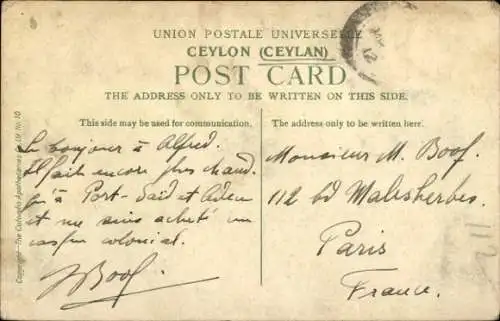 UNION POSTALE UNIVERSELLE
CEYLON (CEYLAN)
POST CARD
THE ADDRESS ONLY TO BE WRITTEN ON THIS SIDE.
This side may be used for communication.
The address only to be written here.
bonjour à Alfred.
Il fait encore plus chaud
qu'à Port-Saïd et Aden
et me suis acheté un
casque colonial.
J Boof.
Monsieur M. Boof.
112 bd Malesherbes.
Paris
France.
Copyright—The Colombo Apothecaries Co. Ltd. No. 10